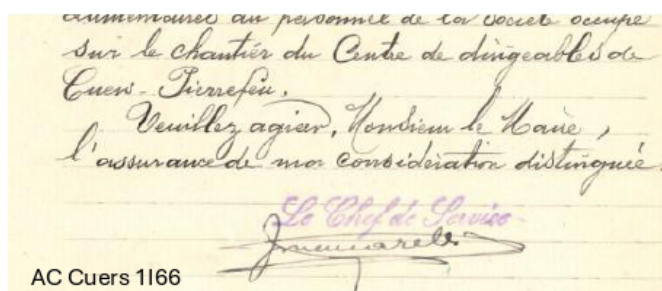 alimentaires du personnel de la Société occupé
sur le chantier du Centre de dirigeables de
Cuers-Pierrefeu.
Veuillez agréer, Monsieur le Maire,
l'assurance de ma considération distinguée.
Le Chef de Service
AC Cuers 1I66